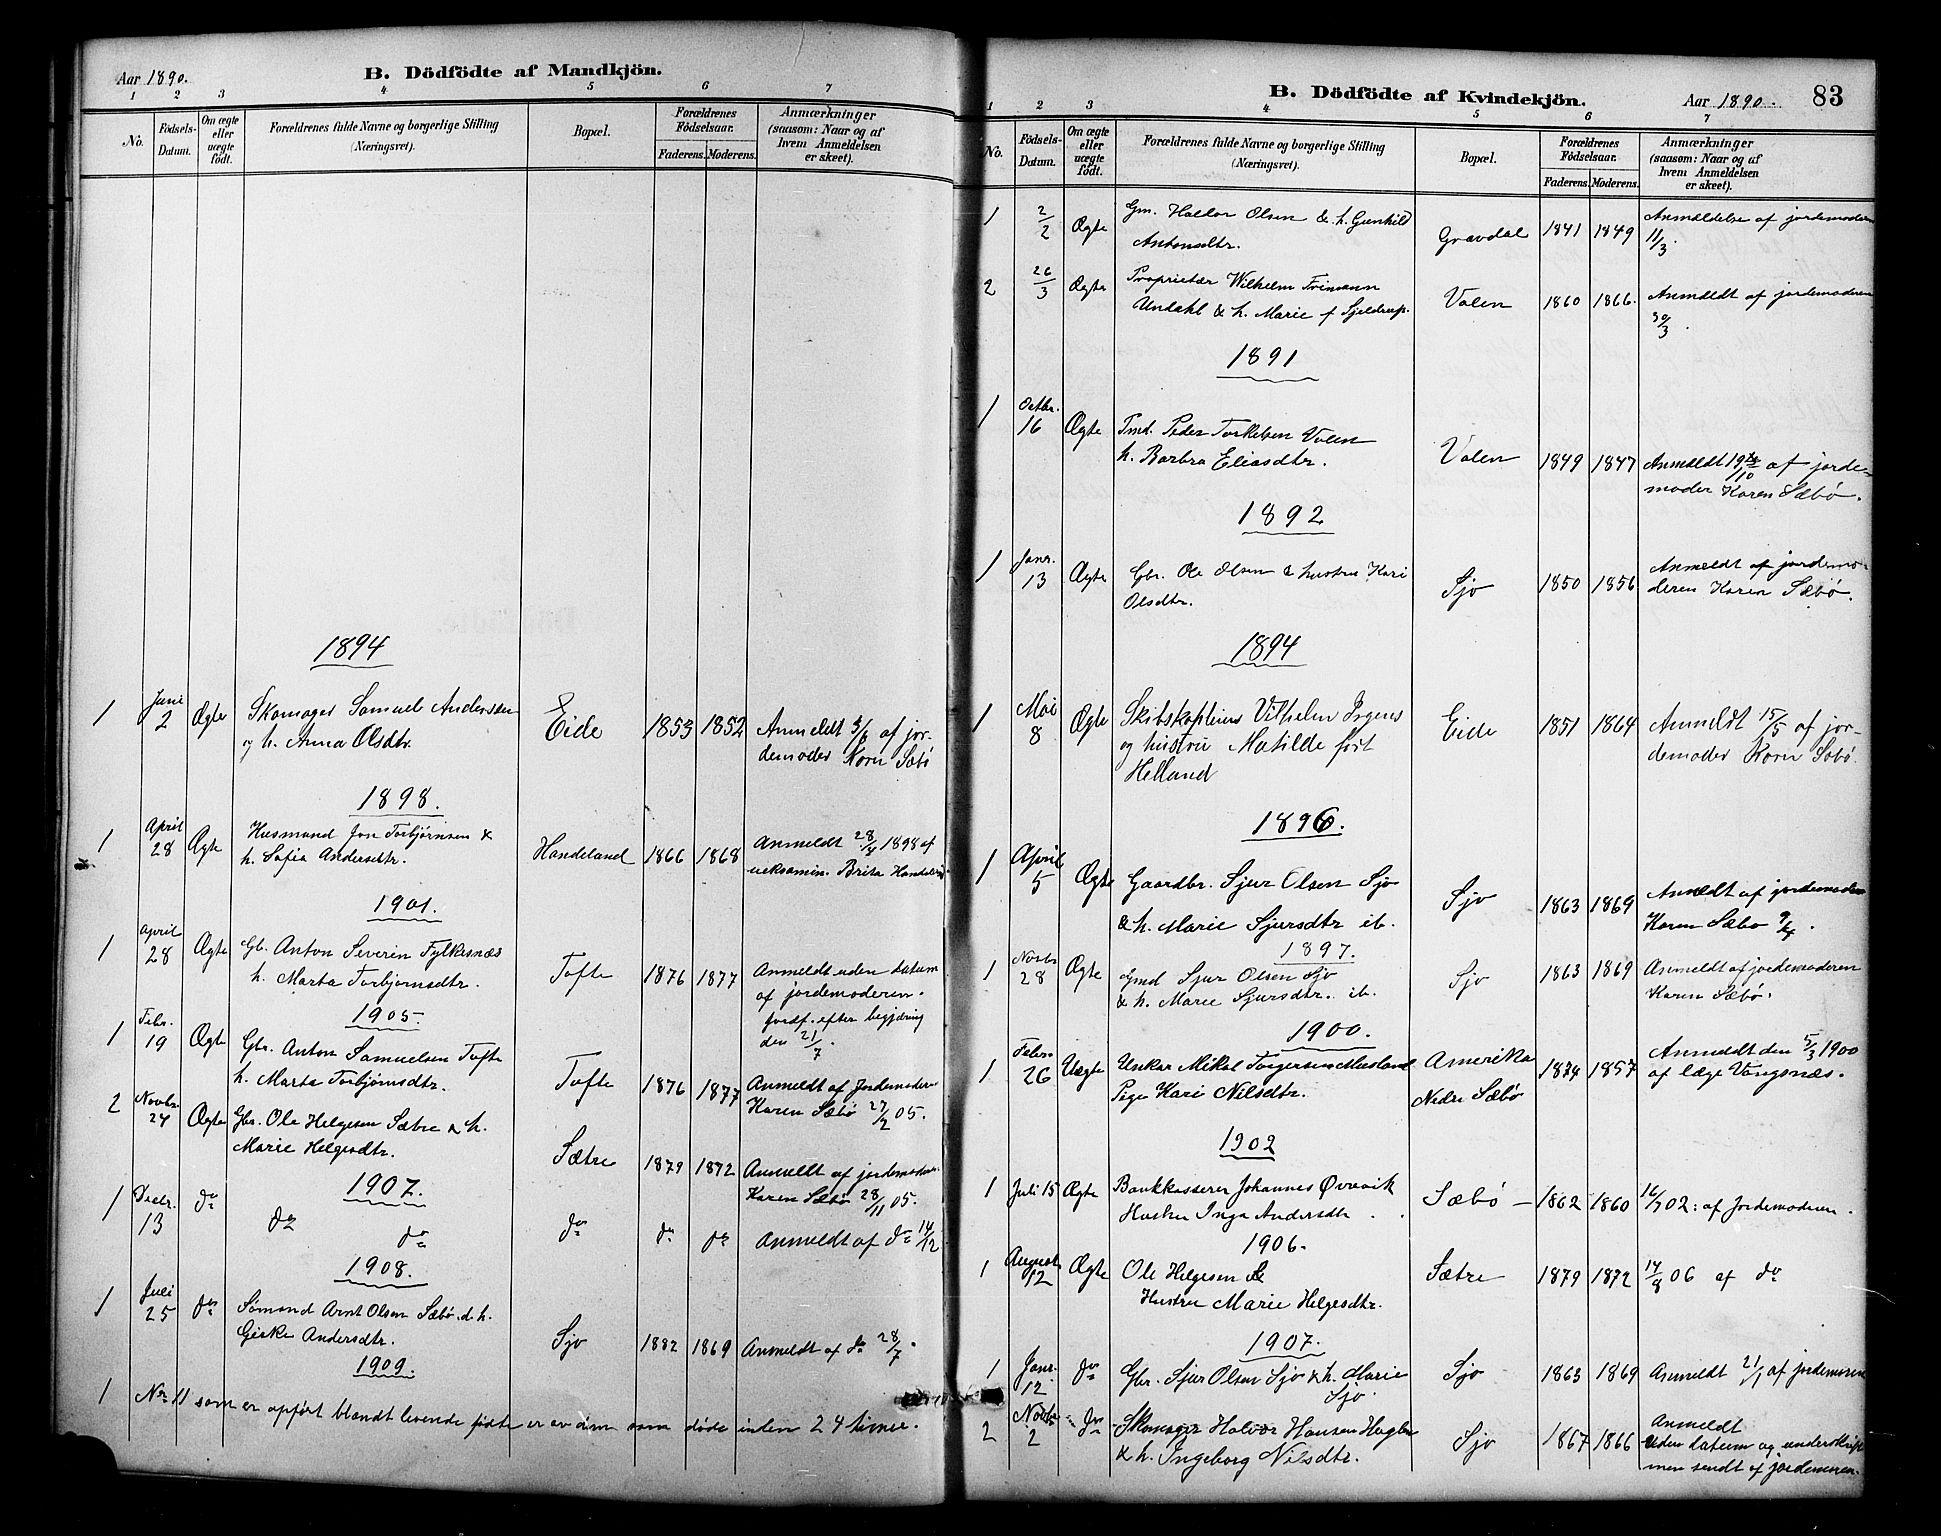 Aar 1890.
B. Dödfödte af Mandkjön.
1 2 3 4 5 6 7
No.
Födsels-
Datum.
Om ægte
eller
uægte
födt.
Forældrenes fulde Navne og borgerlige Stilling
(Næringsvei).
Bopæl.
Forældrenes
Födselsaar.
Faderens. Moderens.
Anmærkninger
(saasom: Naar og af
hvem Anmeldelsen
er skeet).
1894
1 Juni 2 Ægte Skomager Samuel Andersen
og h. Anna Olsdtr.
Eide 1853 1852 Anmeldt 5/6 af jor-
demoder Karn Sæbö
1898.
1 April 28 Ægte Husmand Jon Torbjörnsen &
h. Sofia Andersdtr.
Handeland 1866 1868 Anmeldt 28/4 1898 af
ueksamin. Brita Handeland
1901.
1 April 28 Ægte Gb. Anton Severin Fylkesnæs
h. Marta Torbjörnsdtr.
Tofte 1876 1877 Anmeldt uden datum
af jordemoderen.
jordf. efter begjæring
den 21/7.
1905.
1 Febr. 19 Ægte Gbr. Anton Samuelsen Tofte
h. Marta Torbjörnsdtr.
Tofte 1876 1877 Anmeldt af Jordemoderen
Karen Sæbö 27/2 05.
2 Novbr. 24 Ægte Gbr. Ole Helgesen Sætre & h.
Marie Helgesdtr.
Sætre 1879 1872 Anmeldt af jordemoder
Karen Sæbö 28/11 05.
1907.
1 Decbr. 13 do do do do do do Anmeldt af do 14/12
1908.
1 Juli 25 do Sömand Arnt Olsen Sæbö & h.
Giske Andersdtr.
Sjo 1882 1869 Anmeldt af do 28/7.
1909.
1 No 11 som er opfört blandt levende födte er av dem som döde inden 24 timer.
B. Dödfödte af Kvindekjön.
Aar 1890. 83
1 2 3 4 5 6 7
No.
Födsels-
Datum.
Om ægte
eller
uægte
födt.
Forældrenes fulde Navne og borgerlige Stilling
(Næringsvei).
Bopæl.
Forældrenes
Födselsaar.
Faderens. Moderens.
Anmærkninger
(saasom: Naar og af
hvem Anmeldelsen
er skeet).
1 2/2 Ægte Gm. Haldor Olsen & h. Gunhild
Antonsdtr.
Gravdal 1841 1849 Anmeldelse af jordemoderen
11/3.
2 26/3 Ægte Proprietær Wilhelm Frimann
Undahl & h. Marie f Sjeldrup.
Valen 1860 1866. Anmeldt af jordemoderen
30/3.
1891
1 Octbr. 16 Ægte Gmd. Peder Torkelsen Valen
h. Barbra Eliasdtr.
Valen 1849 1847 Anmeldt 19/10 af jorde-
moder Karen Sæbö.
1892
1 Janr. 13 Ægte Gbr. Ole Olsen & hustru Kari
Olsdtr.
Sjo 1850 1856 Anmeldt af jordemo-
deren Karen Sæbö.
1894
1 Mai 8 Ægte Skibskaptein Vilhelm Irgens
og hustru Matilde fört
Helland
Eide 1851 1864 Anmeldt 15/5 af jor-
demoder Karn Sæbö.
1896.
1 April 5 Ægte Gaardbr. Sjur Olsen Sjo
& h. Marie Sjursdtr ib.
Sjo 1863 1869 Anmeldt af jordemoder
Karen Sæbo 9/4.
1897.
1 Novbr 28 Ægte Gmd Sjur Olsen Sjo
& h. Marie Sjursdtr. ib.
Sjo 1863 1869 Anmeldt af jordemoderen
Karen Sæbö.
1900.
1 Febr. 26 Uægte Unkar Mikal Torgersen Musland
Pige Kari Nilsdtr.
Amerika
Nedre Sæbö
1874 1857 Anmeldt den 5/3 1900
af læge Vangsnæs.
1902
1 Juli 15 Ægte Bankkasserer Johannes Övrevik
Hustru Inga Andersdtr.
Sæbö — 1862 1860 16/7 02: af Jordemoderen.
1906.
1 August 12 Ægte Ole Helgesen &
Hustru Marie Helgesdtr.
Sætre 1879 1872 14/8 06 af do
1907.
1 Janr. 12 do Gbr. Sjur Olsen Sjo & h. Marie
Sjo.
Sjo 1863 1869 Anmeldt 21/1 af jordemoren
2 Novbr. 2 do Skomager Halvor Hansen Hugler
& h. Ingeborg Nilsdtr.
Sjo 1867 1866 Anmeldt
uden datum og underskrift
men sendt af jordemoren.